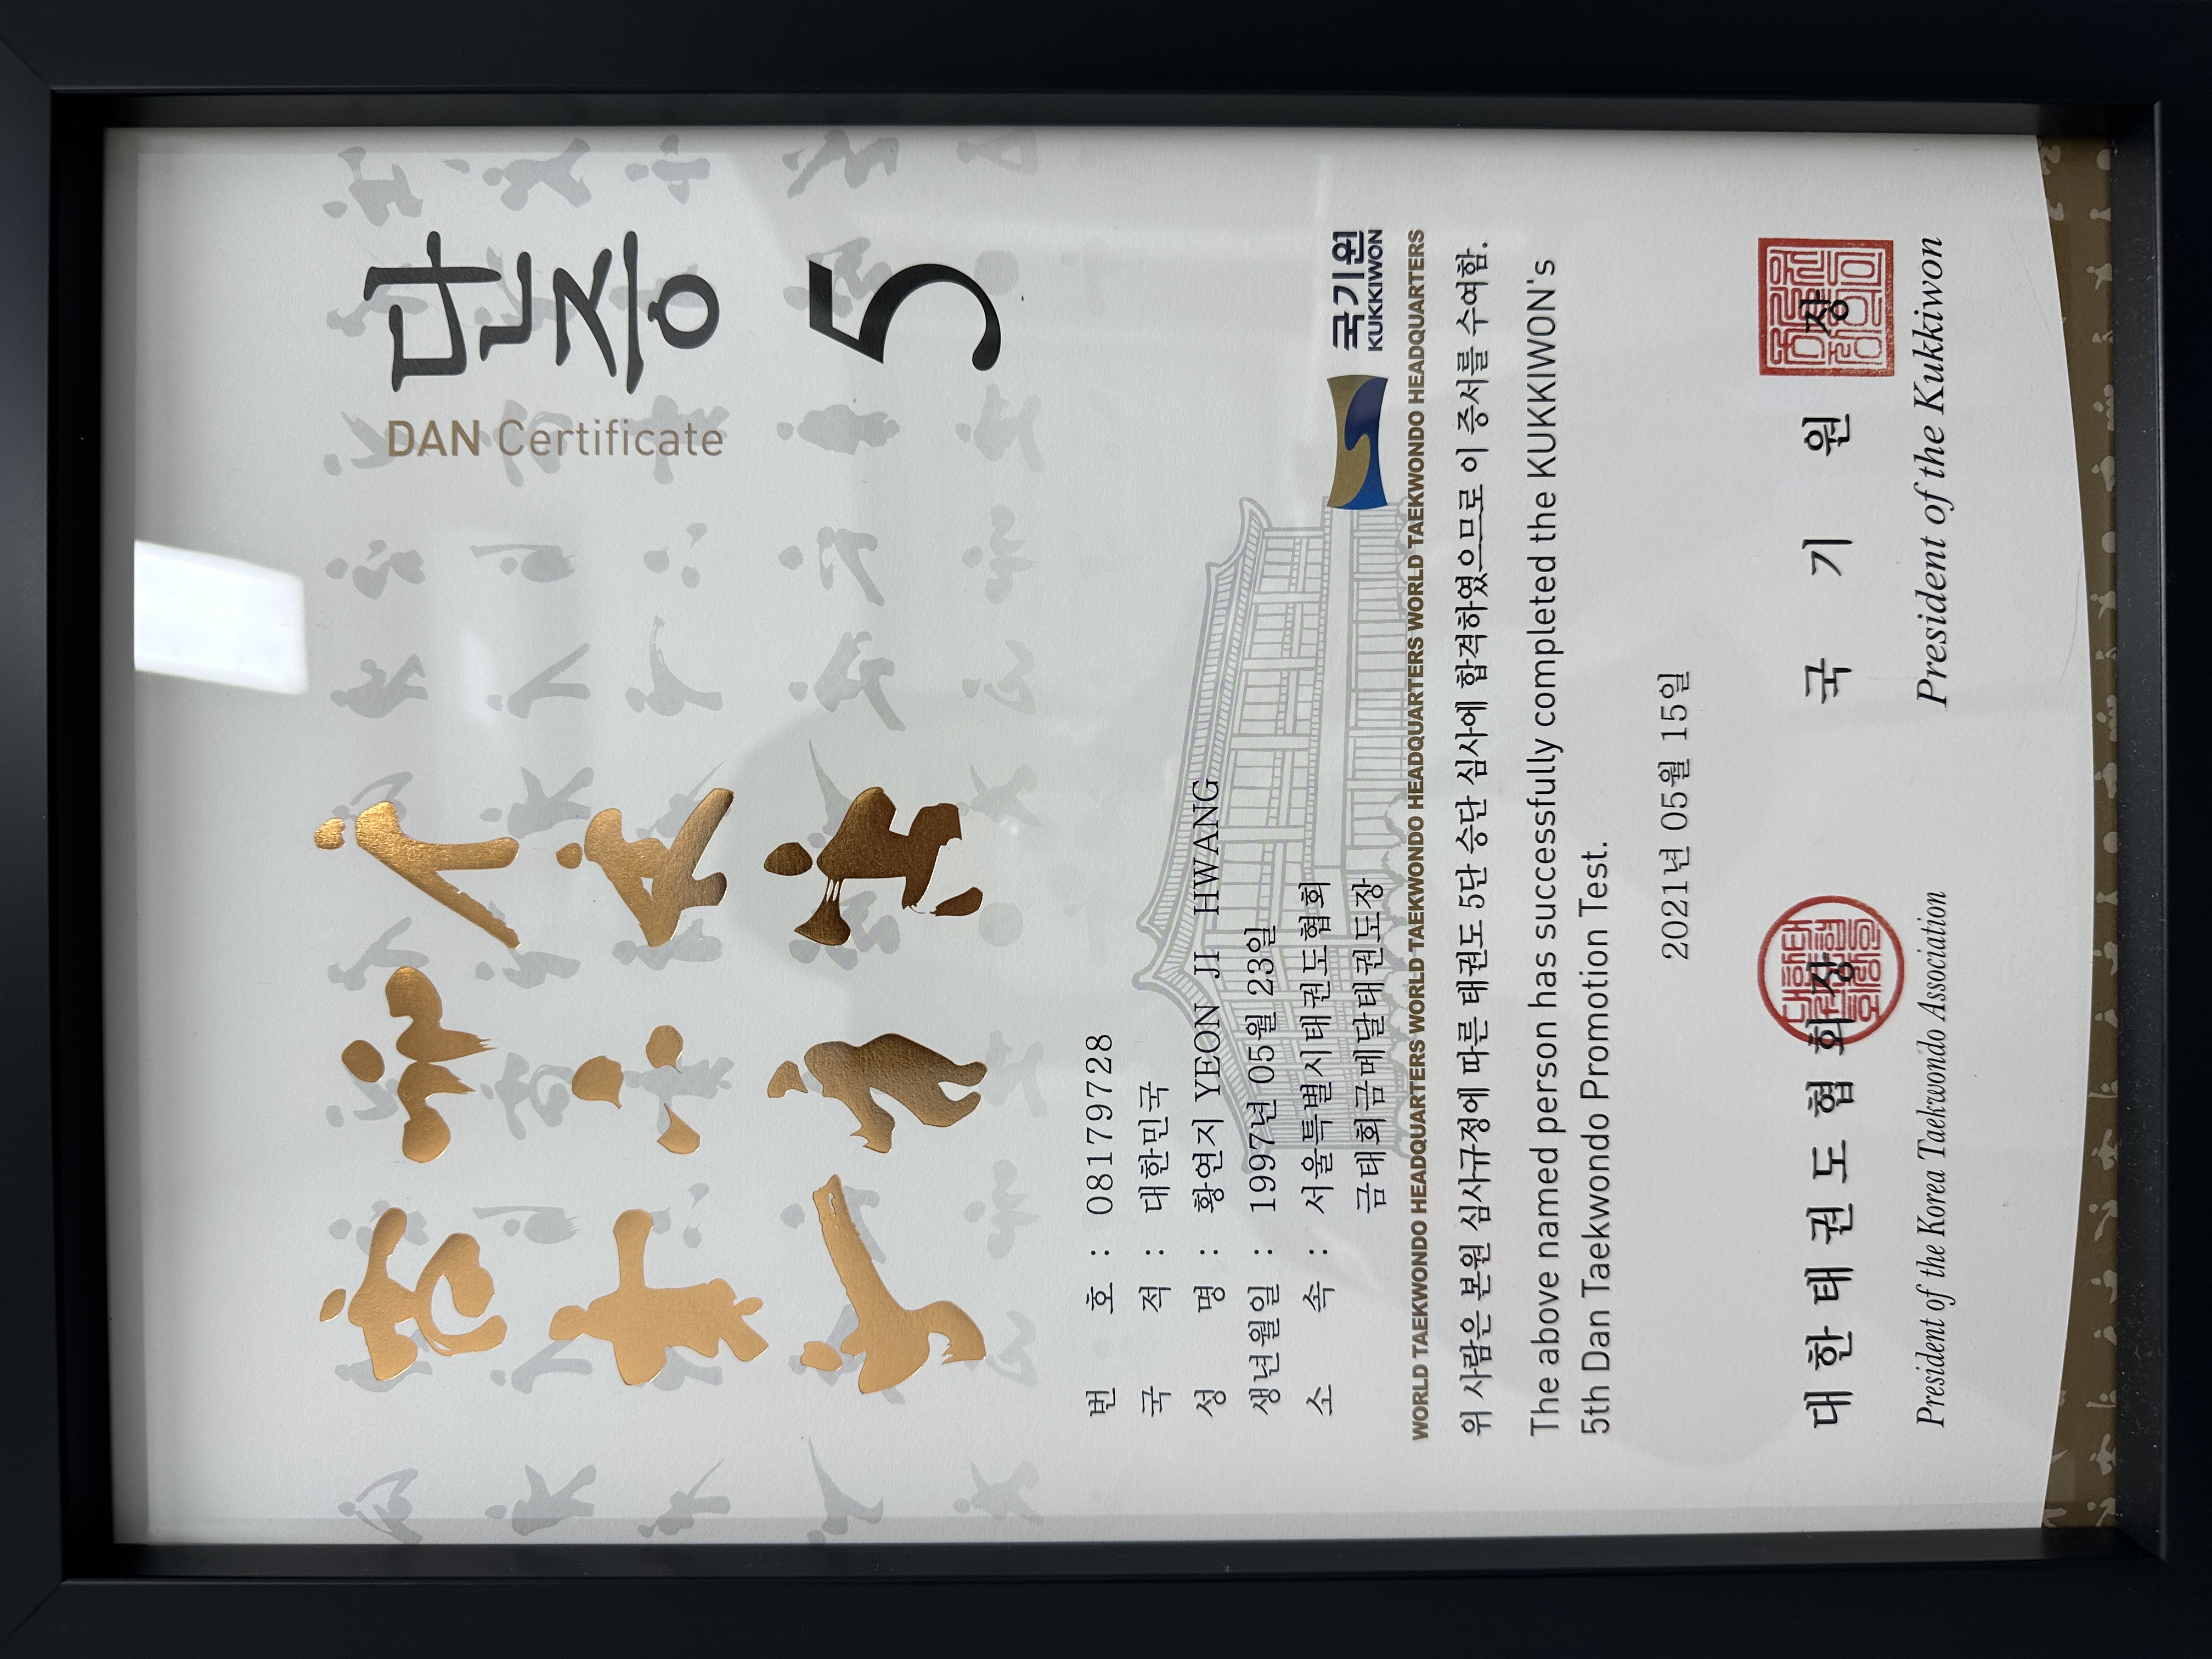 단증
DAN Certificate
5
번 호 : 08179728
국 적 : 대한민국
성 명 : 황연지 YEON JI HWANG
생년월일 : 1997년 05월 23일
소 속 : 서울특별시태권도협회
금태회금메달태권도장
국기원
KUKKIWON
WORLD TAEKWONDO HEADQUARTERS WORLD TAEKWONDO HEADQUARTERS WORLD TAEKWONDO HEADQUARTERS WORLD TAEKWONDO HEADQUARTERS WORLD TAEKWONDO HEADQUARTERS
위 사람은 본원 심사규정에 따른 태권도 5단 승단 심사에 합격하였으므로 이 증서를 수여함.
The above named person has successfully completed the KUKKIWON's
5th Dan Taekwondo Promotion Test.
2021년 05월 15일
대한태권도협회장 국기원장
President of the Korea Taekwondo Association President of the Kukkiwon